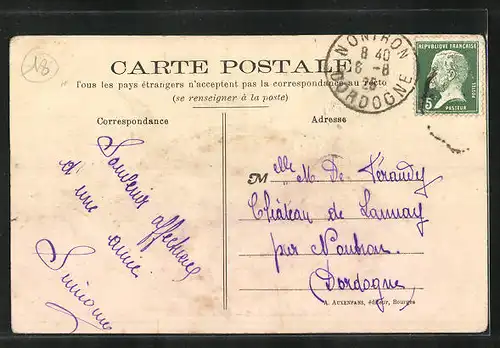 18
NONTRON
8 40
6 -8
25
DORDOGNE
REPUBLIQUE FRANÇAISE
5c
POSTES
PASTEUR
CARTE POSTALE
Tous les pays étrangers n'acceptent pas la correspondance au recto
(se renseigner à la poste)
Correspondance
Adresse
Souvenir affectueux
d'une amie
Simonne
Melle M. De Verandy
Château de Lannay
par Nontron
(Dordogne)
A. AUXENFANS, éditeur, Bourges